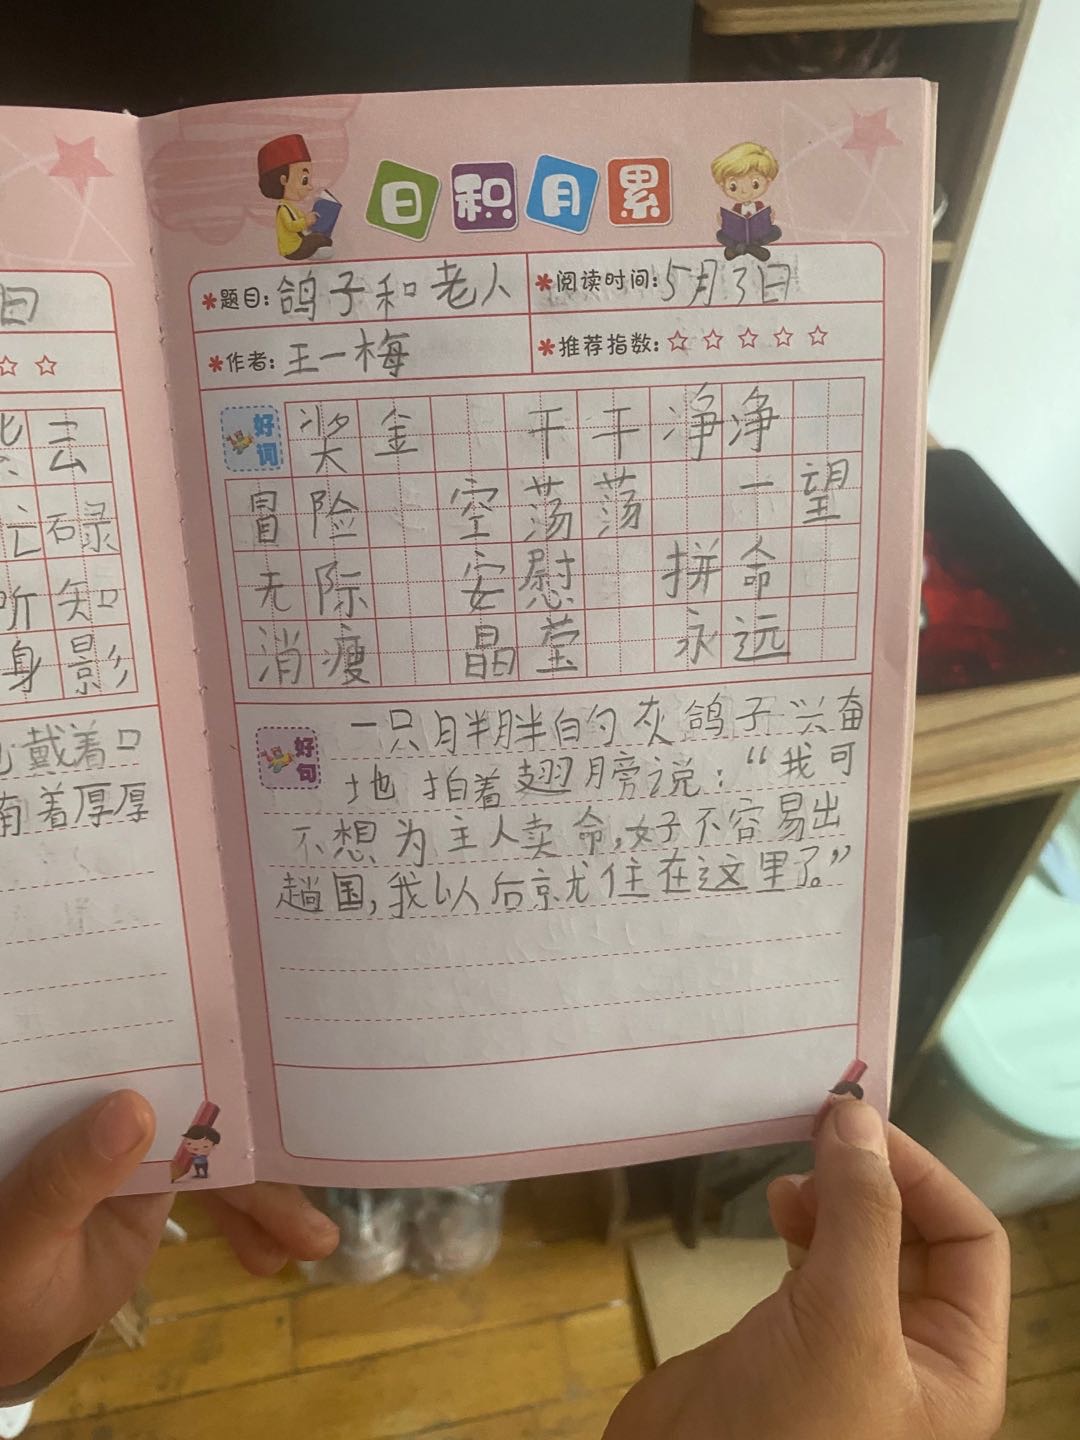 日
去
碌
听 知
身 影
戴着口
着厚厚
日积月累
*题目: 鸽子和老人 *阅读时间: 5月3日
*作者: 王一梅 *推荐指数: ☆ ☆ ☆ ☆ ☆
好词 奖金 干干净净
冒险 空荡荡 一望
无际 安慰 拼命
消瘦 晶莹 永远
好句 一只胖胖的灰鸽子兴奋
地拍着翅膀说：“我可
不想为主人卖命，好不容易出
趟国，我以后就住在这里了。”